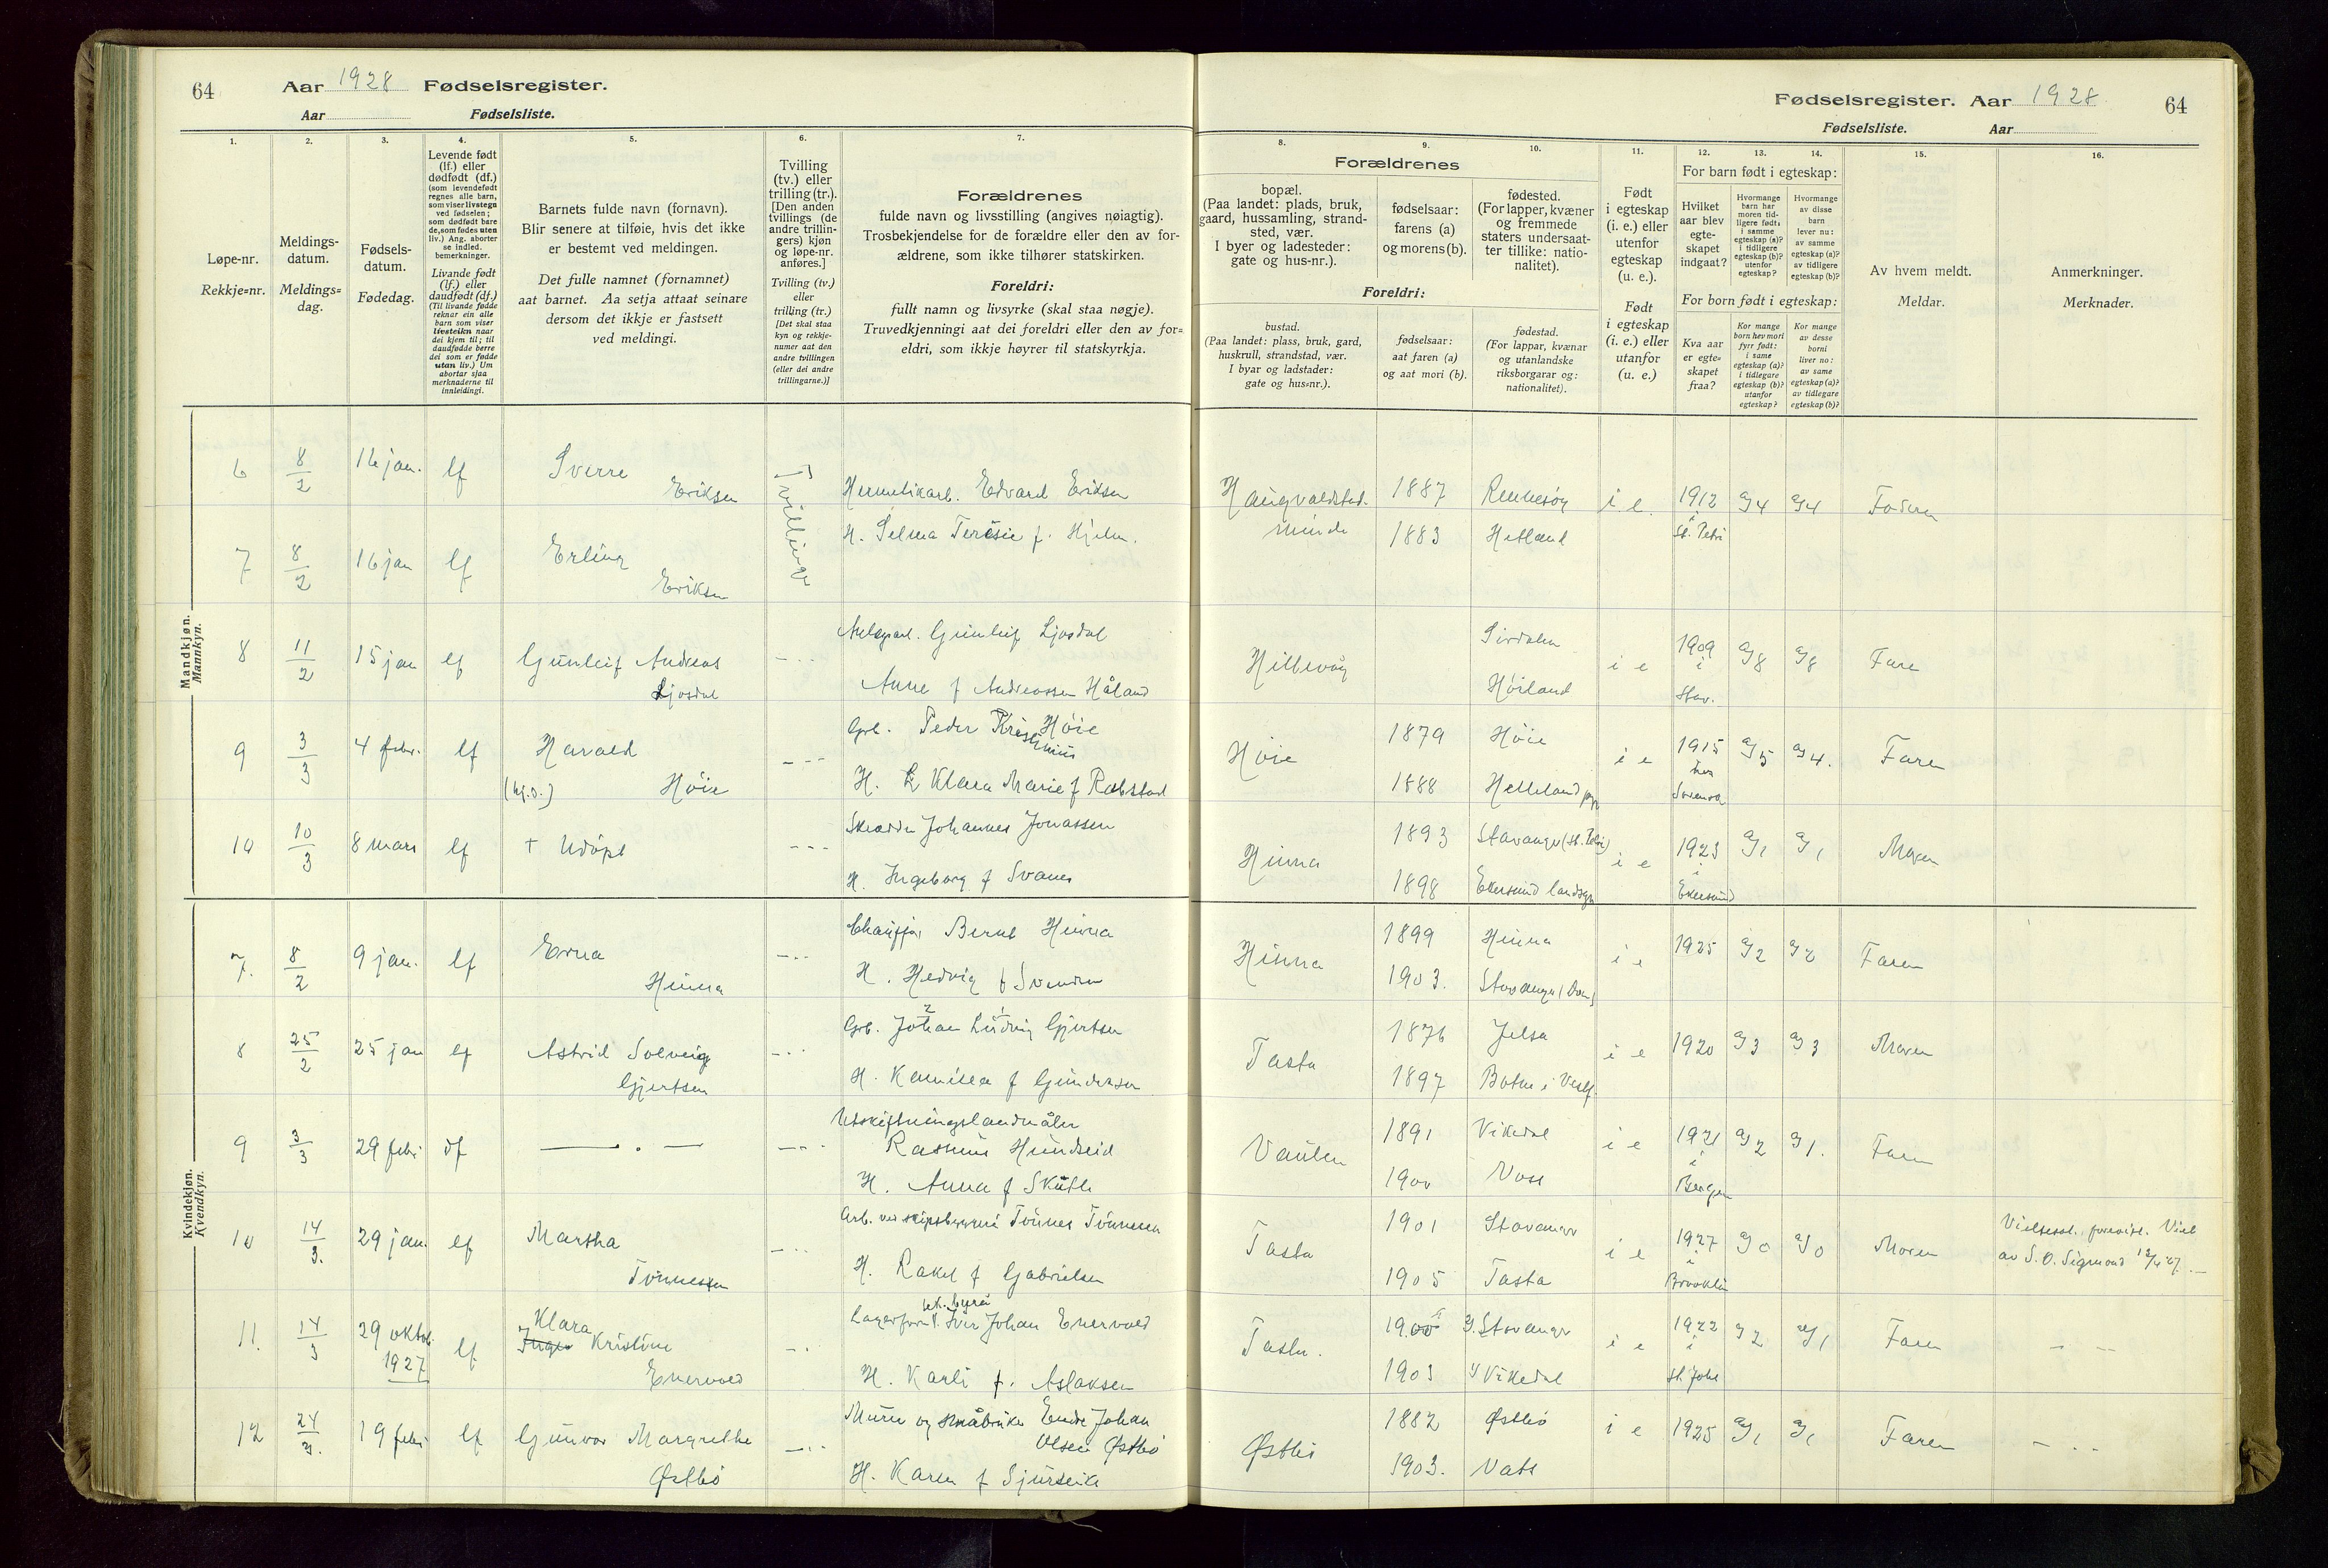 64 Aar 1928 Fødselsregister.
Aar Fødselsliste.
1. 2. 3. 4. 5. 6. 7.
Løpe-nr.
Rekkje=nr.
Meldings-
datum.
Meldings=
dag.
Fødsels-
datum.
Fødedag.
Levende født
(lf.) eller
dødfødt (df.)
(som levendefødt
regnes alle barn,
som viser livstegn
ved fødselen;
som dødfødt bare
de, som fødes uten
liv.) Ang. aborter
se indled.
bemerkninger.
Livande født
(lf.) eller
daudfødt (df.)
(Til livande fødde
reknar ein alle
barn som viser
livsteikn naar
dei kjem til; til
daudfødde berre
dei som er fødde
utan liv.) Um
abortar sjaa
merknaderne til
innleidingi.
Barnets fulde navn (fornavn).
Blir senere at tilføie, hvis det ikke
er bestemt ved meldingen.
Det fulle namnet (fornamnet)
aat barnet. Aa setja attaat seinare
dersom det ikkje er fastsett
ved meldingi.
Tvilling
(tv.) eller
trilling (tr.).
[Den anden
tvillings (de
andre trillin-
gers) kjøn
og løpe-nr.
anføres.]
Tvilling (tv.)
eller
trilling (tr.)
[Det skal staa
kyn og rekkje-
numer aat den
andre tvillingen
(eller dei andre
trillingarne.)]
Forældrenes
fulde navn og livsstilling (angives nøiagtig).
Trosbekjendelse for de forældre eller den av for-
ældrene, som ikke tilhører statskirken.
Foreldri:
fullt namn og livsyrke (skal staa nøgje).
Truvedkjenningi aat dei foreldri eller den av for=
eldri, som ikkje høyrer til statskyrkja.
Mandkjøn.
Mannkyn.
6 8/2 16 jan. lf Sverre
Eriksen
Tvillinger
Hermetikarb. Edvard Eriksen
H. Selma Teresie f. Hjelm.
7 8/2 16 jan lf Erling
Eriksen
8 11/2 15 jan lf Gunleif Andreas
Ljosdal
Gunleif Ljosdal
Anne f Andreassen Håland
9 3/3 4 febr. lf Harald
Høie
Grb. Peder Kristinius Høie
H. Klara Marie f Rabstad
10 10/3 8 mars lf + Udøpt
Skrædder Johannes Jonassen
H. Ingeborg f Svanes
Kvindekjøn.
Kvendkyn.
7. 8/2 9 jan. lf Erna
Hinna
Chauffør Bernt Hinna
H. Hedvig f Svendsen
8 25/2 25 jan lf Astrid Solveig
Gjertsen
Grb. Johan Ludvig Gjertsen
H. Kamilla f Gundersen
9 3/3 29 febr df —.—
Utskiftningslandmåler
Rasmus Hundseid
H. Anna f Skutle
10 14/3. 29 jan. lf Martha
Tønnessen
Arb. ved skipsbyggeri Tönnes Tönnesen
H. Rakel f Gabrielsen
11. 14/3 29 oktob. 1927 lf Klara
Inga Kristine
Enervold
Iver Johan Enervold
H. Karli f. Aslaksen
12 24/3. 19 febr lf Gunvor Margrethe
Østbö
Murer og småbruker Endre Johan
Olsen Østbö
H. Karen f Sjurseike
Fødselsregister. Aar 1928 64
Fødselsliste. Aar
8. 9. 10. 11. 12. 13. 14. 15. 16.
Forældrenes
bopæl.
(Paa landet: plads, bruk,
gaard, hussamling, strand-
sted, vær.
I byer og ladesteder:
gate og hus-nr.).
fødselsaar:
farens (a)
og morens (b).
fødested.
(For lapper, kvæner
og fremmede
staters undersaat-
ter tillike: natio-
nalitet).
Foreldri:
bustad.
(Paa landet: plass, bruk, gard,
huskrull, strandstad, vær.
I byar og ladstader:
gate og hus=nr.).
fødselsaar:
aat faren (a)
og aat mori (b).
fødestad.
(For lappar, kvænar
og utanlandske
riksborgarar og:
nationalitet).
Født
i egteskap
(i. e.) eller
utenfor
egteskap
(u. e.).
Født
i egteskap
(i. e.) eller
utanfor
(u. e.)
For barn født i egteskap:
Hvilket
aar blev
egte-
skapet
indgaat?
Hvormange
barn har
moren tid-
ligere født:
i samme
egteskap (a)?
i tidligere
egteskap (b)?
utenfor
egteskap?
Hvormange
av disse
barn
lever nu:
av samme
egteskap (a)?
av tidligere
egteskap (b)?
For born født i egteskap:
Kva aar
er egte-
skapet
fraa?
Kor mange
born hev mori
fyrr født:
i same
egteskap (a)?
i tidlegare
egteskap (b)?
utanfor
egteskap?
Kor mange
av desse
borni
liver no:
av same
egteskap (a)?
av tidlegare
egteskap (b)?
Av hvem meldt.
Meldar.
Anmerkninger.
Merknader.
Haugvaldstad
minde 1887 Rennesøy i. e. 1912 a/4 a/4 Faderen
1883 Hetland St. Petri
Hillevåg Sirdalen i e 1909 a/8 a/8 Faren
Høiland i Stav.
Høie 1879 Høie i e 1915 a/5 a/4. Faren
1888 Helleland
Hinna 1893 Stavanger (St. Petri) i e 1923 a/1 a/1 Moren
1898 Ekersund landsogn i Ekersund
Hinna 1899 Hinna i e 1925 a/2 a/2 Faren
1903. Stavanger (Dom)
Tasta 1876 Jelsa i e 1920 a/3 a/3 Moren
1897 Botne i Vestf.
Vaulen 1891 Vikedal i e 1921 a/2 a/1. Faren
1900 Voss i Bergen
Tasta 1901 Stavanger i e 1927 a/0 a/0 Moren
1905 Tasta i Brooklin
Vielsesat. forevist. Viet
av S. O. Sigmond 12/4 27.
Tasta. 1900 Stavanger i e 1922 a/2 a/1 Faren
1903 Vikedal i St. Joh.
Østbö 1882 Østbö i e 1925 a/1 a/1 Faren
1903. Vats